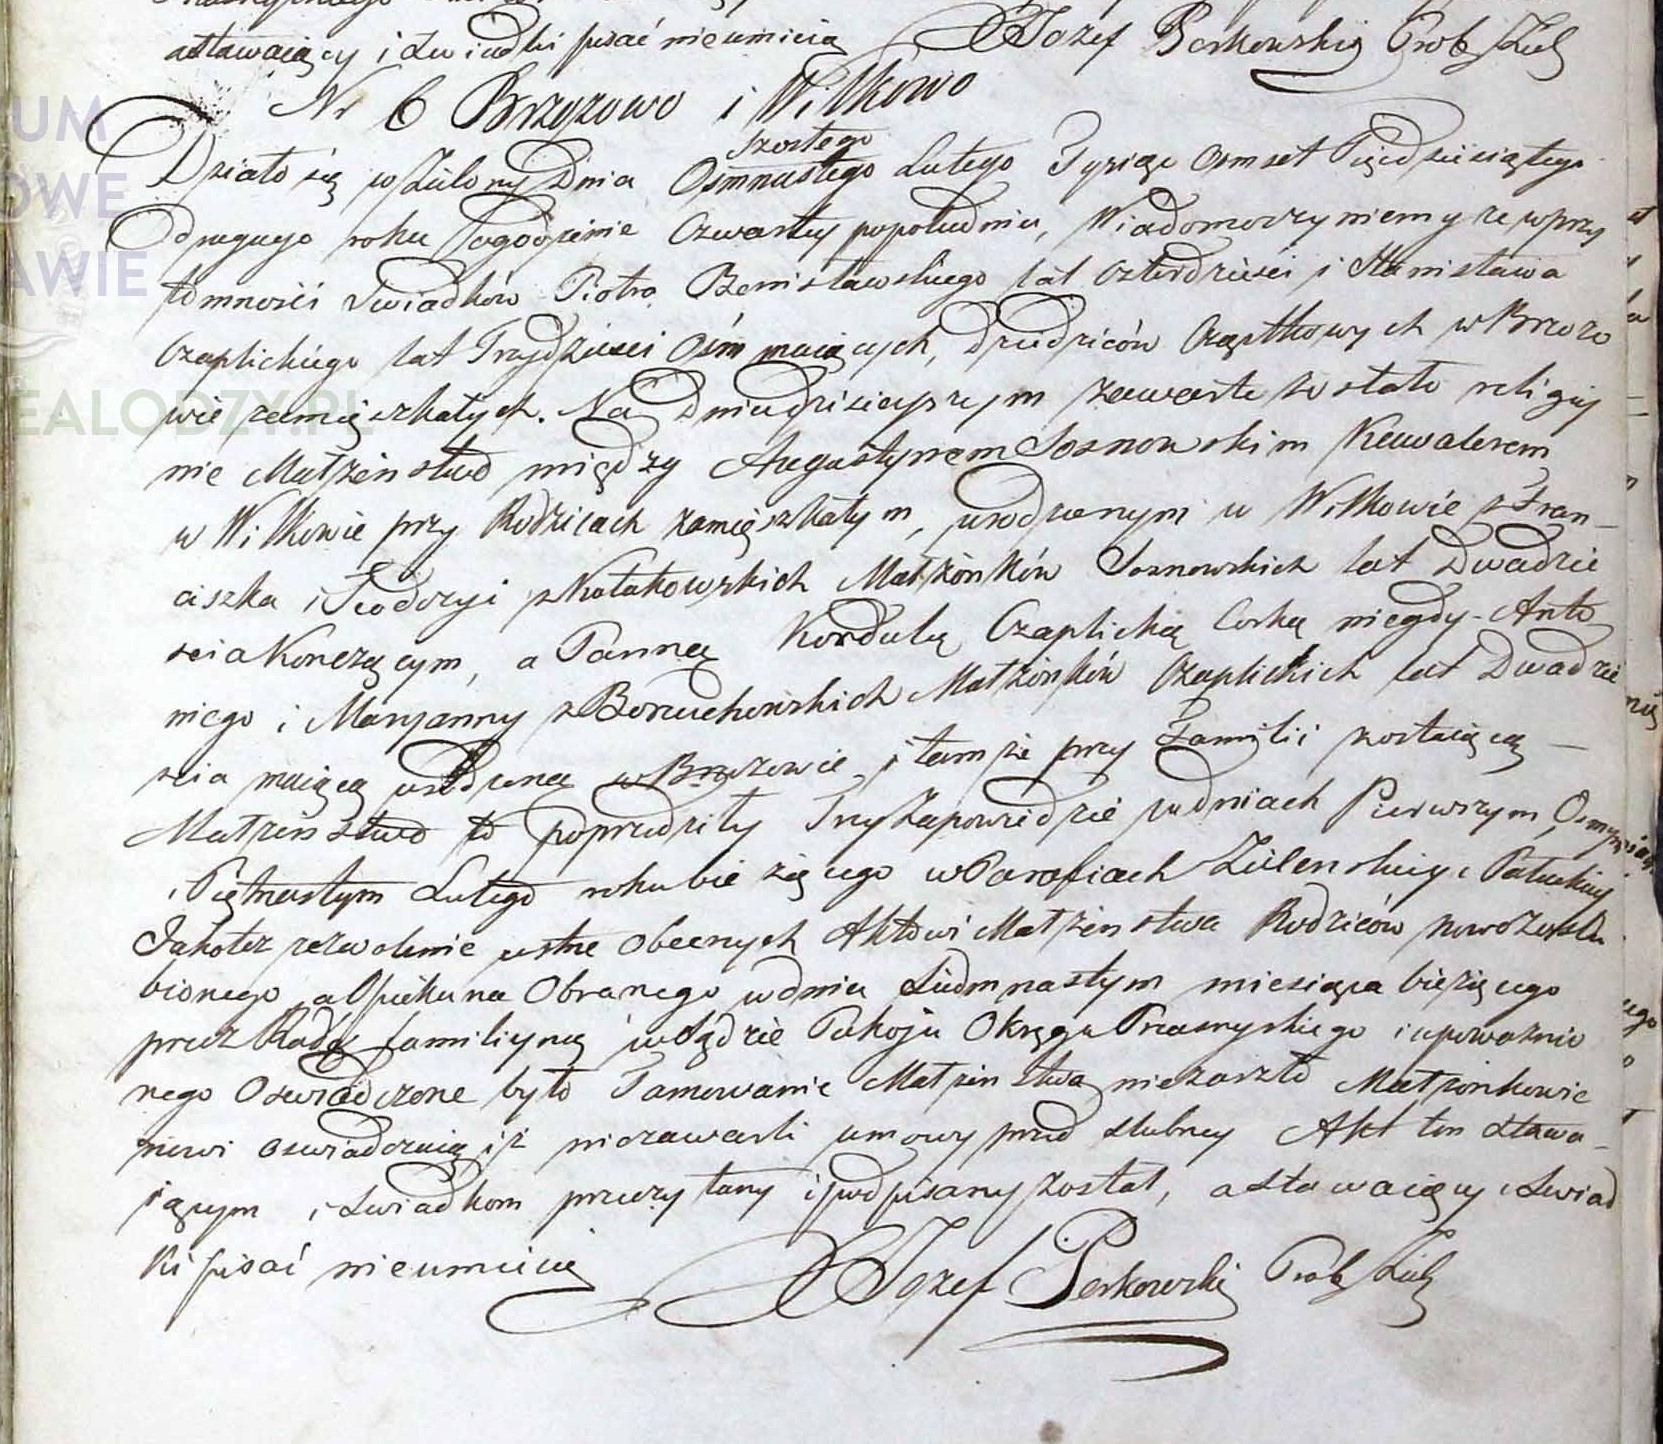 astawaiący i Swiadki pisać nieumieią JXJozef Perkowski Prob Ziel
Nr 6 Brzozowo i Wilkowo
szostego
Działo się w Zielony Dnia Osmnastego Lutego Tysiąc Osmset Pięcdziesiątego
drugiego roku o godzinie Czwarty popołudniu, Wiadomo czyniemy ze w przy
tomności Swiadków Piotra Bemisławskiego lat czterdzieści i Stanisława
Czaplickiego lat Trzydzieści Ośm maiących, Dziedziców Cząstkowych w Brzozo
wie zamięszkałych. Na Dniu dzisieyszym zawarte zostało religiy
nie Małżeństwo między Augustynem Sosnowskim Kawalerem
w Wilkowie przy Rodzicach zamięszkałym, urodzonym w Wilkowie z Fran-
ciszka i Teodozyi z Kołakowskich Małżonków Sosnowskich lat Dwadzie
scia Konczącym, a Panną Kordulą Czaplicką Corką niegdy Anto
niego i Maryanny z Boruchowskich Małżonków Czaplickich lat Dwadzie
scia maiącą urodzoną w Brzozowie i tamże przy Familii zostaiącą —
Małżeństwo to poprzedziły Trzy Zapowiedzie w dniach Pierwszym, Osmym
i Piętnastym Lutego roku bieżącego w Parafiach Zielenskiey i Pałuckiey
Jakotez zezwolenie ustne obecnych Aktowi Małżenstwa Rodziców nowozaslu
bionego, a Opiekuna Obranego w dniu Siedmnastym miesiąca bieżącego
przez Radę familiyną w Sądzie Pokoju Okręgu Przasnyskiego i upowaznio
nego Oswiadczone było Tamowanie Małżenstwa niezaszło Małżonkowie
nowi oswiadczaią iż niezawarli umowy przed slubney Akt ten stawa-
iącym i Swiadkom przeczytany i podpisany został, a stawaiący i Swiad
ki pisać nieumieią JXJozef Perkowski Prob Ziel